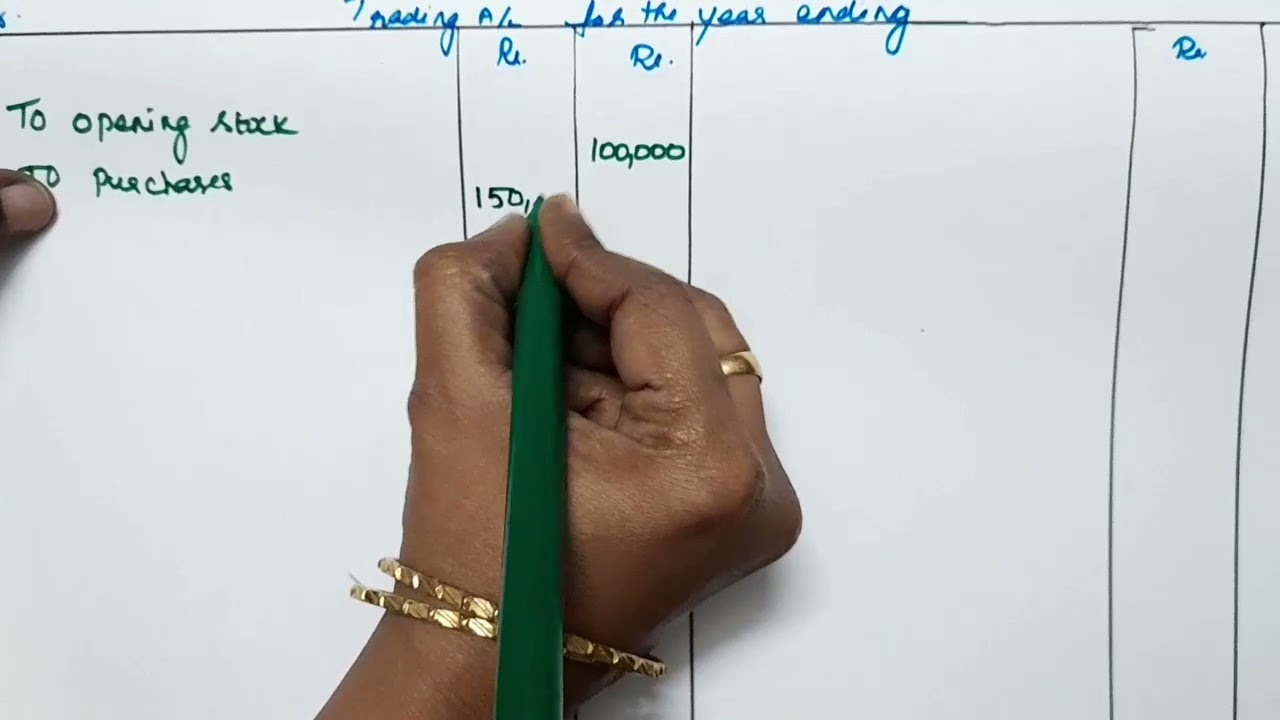 Trading A/c for the year ending
Rs. Rs. Rs
To opening stock
100,000
To purchases
150,